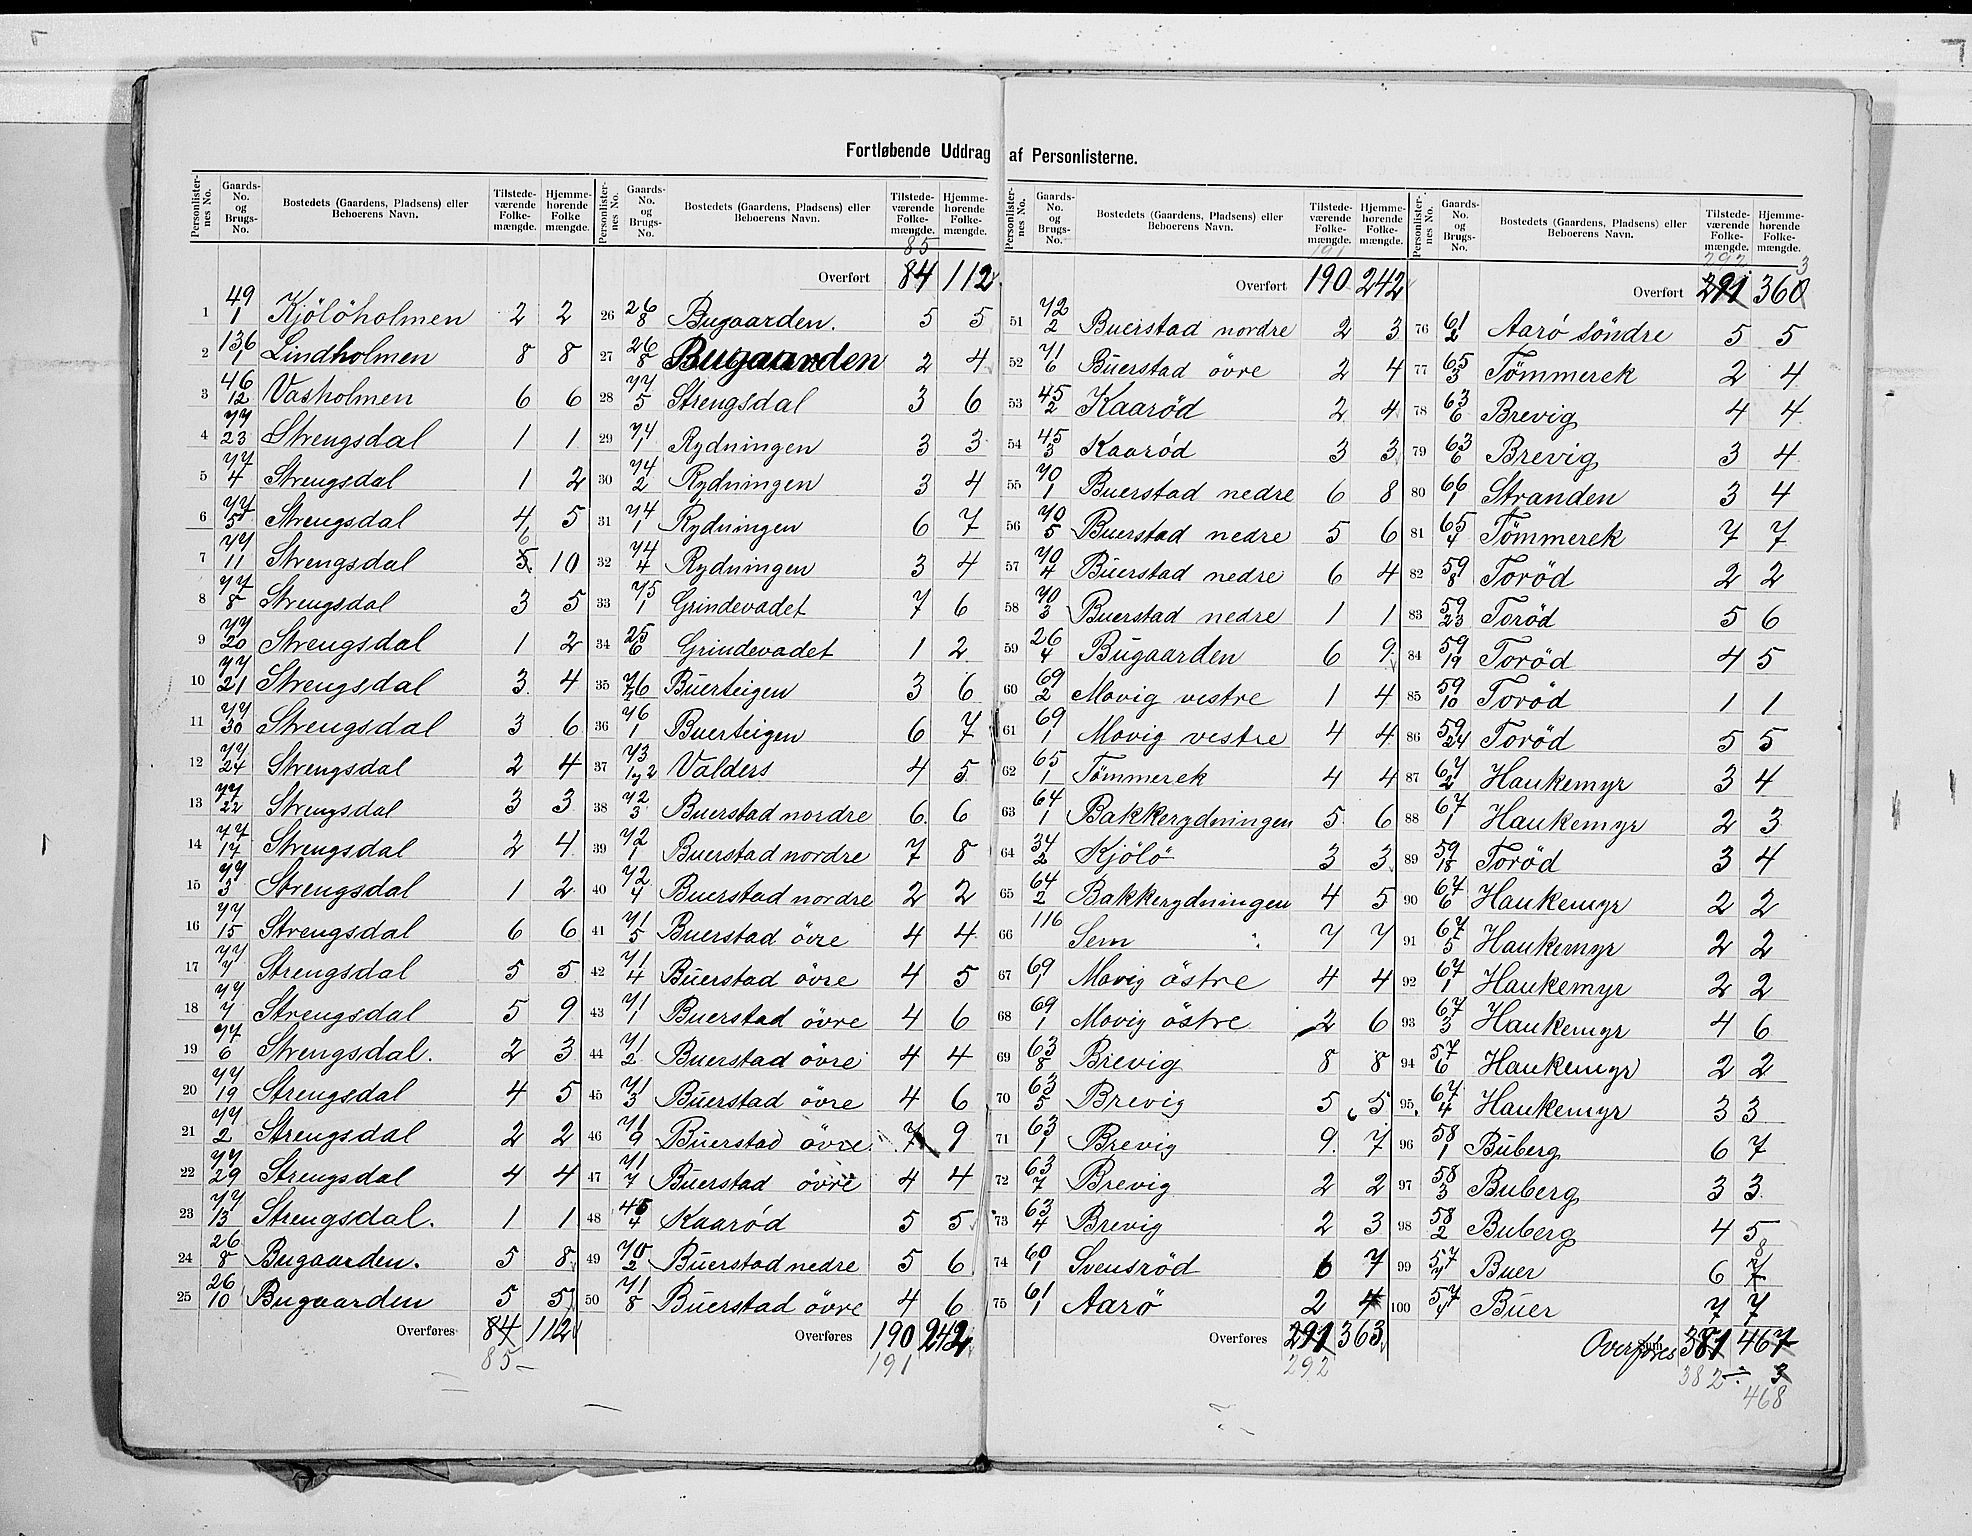 Fortløbende Uddrag af Personlisterne.
Personlisternes No. Gaards-No. og Brugs-No. Bostedets (Gaardens, Pladsens) eller Beboerens Navn. Tilstedeværende Folkemængde. Hjemmehørende Folkemængde.
1 49/1 Kjölöholmen 2 2
2 136/1 Lindholmen 8 8
3 46/12 Vasholmen 6 6
4 77/23 Strengsdal 1 1
5 77/4 Strengsdal 1 2
6 77/5 Strengsdal 4 5
7 77/11 Strengsdal 5 6 10
8 77/8 Strengsdal 3 5
9 77/20 Strengsdal 1 2
10 77/21 Strengsdal 3 4
11 77/30 Strengsdal 3 6
12 77/24 Strengsdal 2 4
13 77/22 Strengsdal 3 3
14 77/17 Strengsdal 2 4
15 77/3 Strengsdal 1 2
16 77/15 Strengsdal 6 6
17 77/7 Strengsdal 5 5
18 77/7 Strengsdal 5 9
19 77/6 Strengsdal. 2 3
20 77/19 Strengsdal 4 5
21 77/2 Strengsdal 2 2
22 77/29 Strengsdal 4 4
23 77/13 Strengsdal. 1 1
24 26/8 Bugaarden. 5 8
25 26/10 Bugaarden 5 5
Overføres 84 112
85
Personlisternes No. Gaards-No. og Brugs-No. Bostedets (Gaardens, Pladsens) eller Beboerens Navn. Tilstedeværende Folkemængde. Hjemmehørende Folkemængde.
85
Overført 84 112
26 26/8 Bugaarden. 5 5
27 26/8 Bugaarden 2 4
28 77/5 Strengsdal 3 6
29 74/1 Rydningen 3 3
30 74/2 Rydningen 3 4
31 74/1 Rydningen 6 7
32 74/4 Rydningen 3 4
33 75/1 Grindevadet 7 6
34 25/6 Grindevadet 1 2
35 76 Buerteigen 3 6
36 76/1 Buerteigen 6 7
37 73/1 og 2 Valders 4 5
38 72/3 Buerstad nordre 6 6
39 72/1 Buerstad nordre 7 8
40 72/4 Buerstad nordre 2 2
41 71/5 Buerstad övre 4 4
42 71/4 Buerstad övre 4 5
43 71/1 Buerstad övre 4 6
44 71/2 Buerstad övre 4 4
45 71/3 Buerstad övre 4 6
46 71/9 Buerstad övre 7 9
47 71/7 Buerstad övre 4 4
48 45/4 Kaaröd 5 5
49 70/2 Buerstad nedre 5 6
50 71/8 Buerstad övre 4 6
Overføres 190 242
191
Personlisternes No. Gaards-No. og Brugs-No. Bostedets (Gaardens, Pladsens) eller Beboerens Navn. Tilstedeværende Folkemængde. Hjemmehørende Folkemængde.
191
Overført 190 242
51 72/2 Buerstad nordre 2 3
52 71/6 Buerstad övre 2 4
53 45/2 Kaaröd 2 4
54 45/3 Kaaröd 3 3
55 70/1 Buerstad nedre 6 8
56 70/5 Buerstad nedre 5 6
57 70/4 Buerstad nedre 6 4
58 70/3 Buerstad nedre 1 1
59 26/4 Bugaarden 6 9
60 69/2 Movig vestre 1 4
61 69/1 Movig vestre 4 4
62 65/1 Tömmerek 4 4
63 64/1 Bakkerydningen 5 6
64 34/2 Kjölö 3 3
65 64/2 Bakkerydningen 4 5
66 116 Sem 7 7
67 69/1 Movig östre 4 4
68 69/1 Movig östre 2 6
69 63/8 Brevig 8 8
70 63/5 Brevig 5 5
71 63/1 Brevig 9 7
72 63/7 Brevig 2 2
73 63/4 Brevig 2 3
74 60/1 Svensröd 6 7
75 61/1 Aarö 2 4
Overføres 291 363
292
Personlisternes No. Gaards-No. og Brugs-No. Bostedets (Gaardens, Pladsens) eller Beboerens Navn. Tilstedeværende Folkemængde. Hjemmehørende Folkemængde.
292 3
Overført 291 360
76 61/2 Aarö söndre 5 5
77 65/3 Tömmerek 2 4
78 63/6 Brevig 4 4
79 63/6 Brevig 3 4
80 66/1 Stranden 3 4
81 65/4 Tömmerek 7 7
82 59/8 Toröd 2 2
83 59/23 Toröd 5 6
84 59/19 Toröd 4 5
85 59/10 Toröd 1 1
86 59/24 Toröd 5 5
87 67/2 Haukemyr 3 4
88 67/1 Haukemyr 2 3
89 59/18 Toröd 3 4
90 67/6 Haukemyr 2 2
91 67/5 Haukemyr 2 2
92 67/1 Haukemyr 2 2
93 67/3 Haukemyr 4 6
94 57/6 Haukemyr 2 2
95 67/4 Haukemyr 3 3
96 58/1 Buberg 6 7
97 58/3 Buberg 3 3
98 58/2 Buberg 4 5
99 57/7 Buer 6 7 8
100 57/4 Buer 7 7
Overføres 381 467
382 3
468